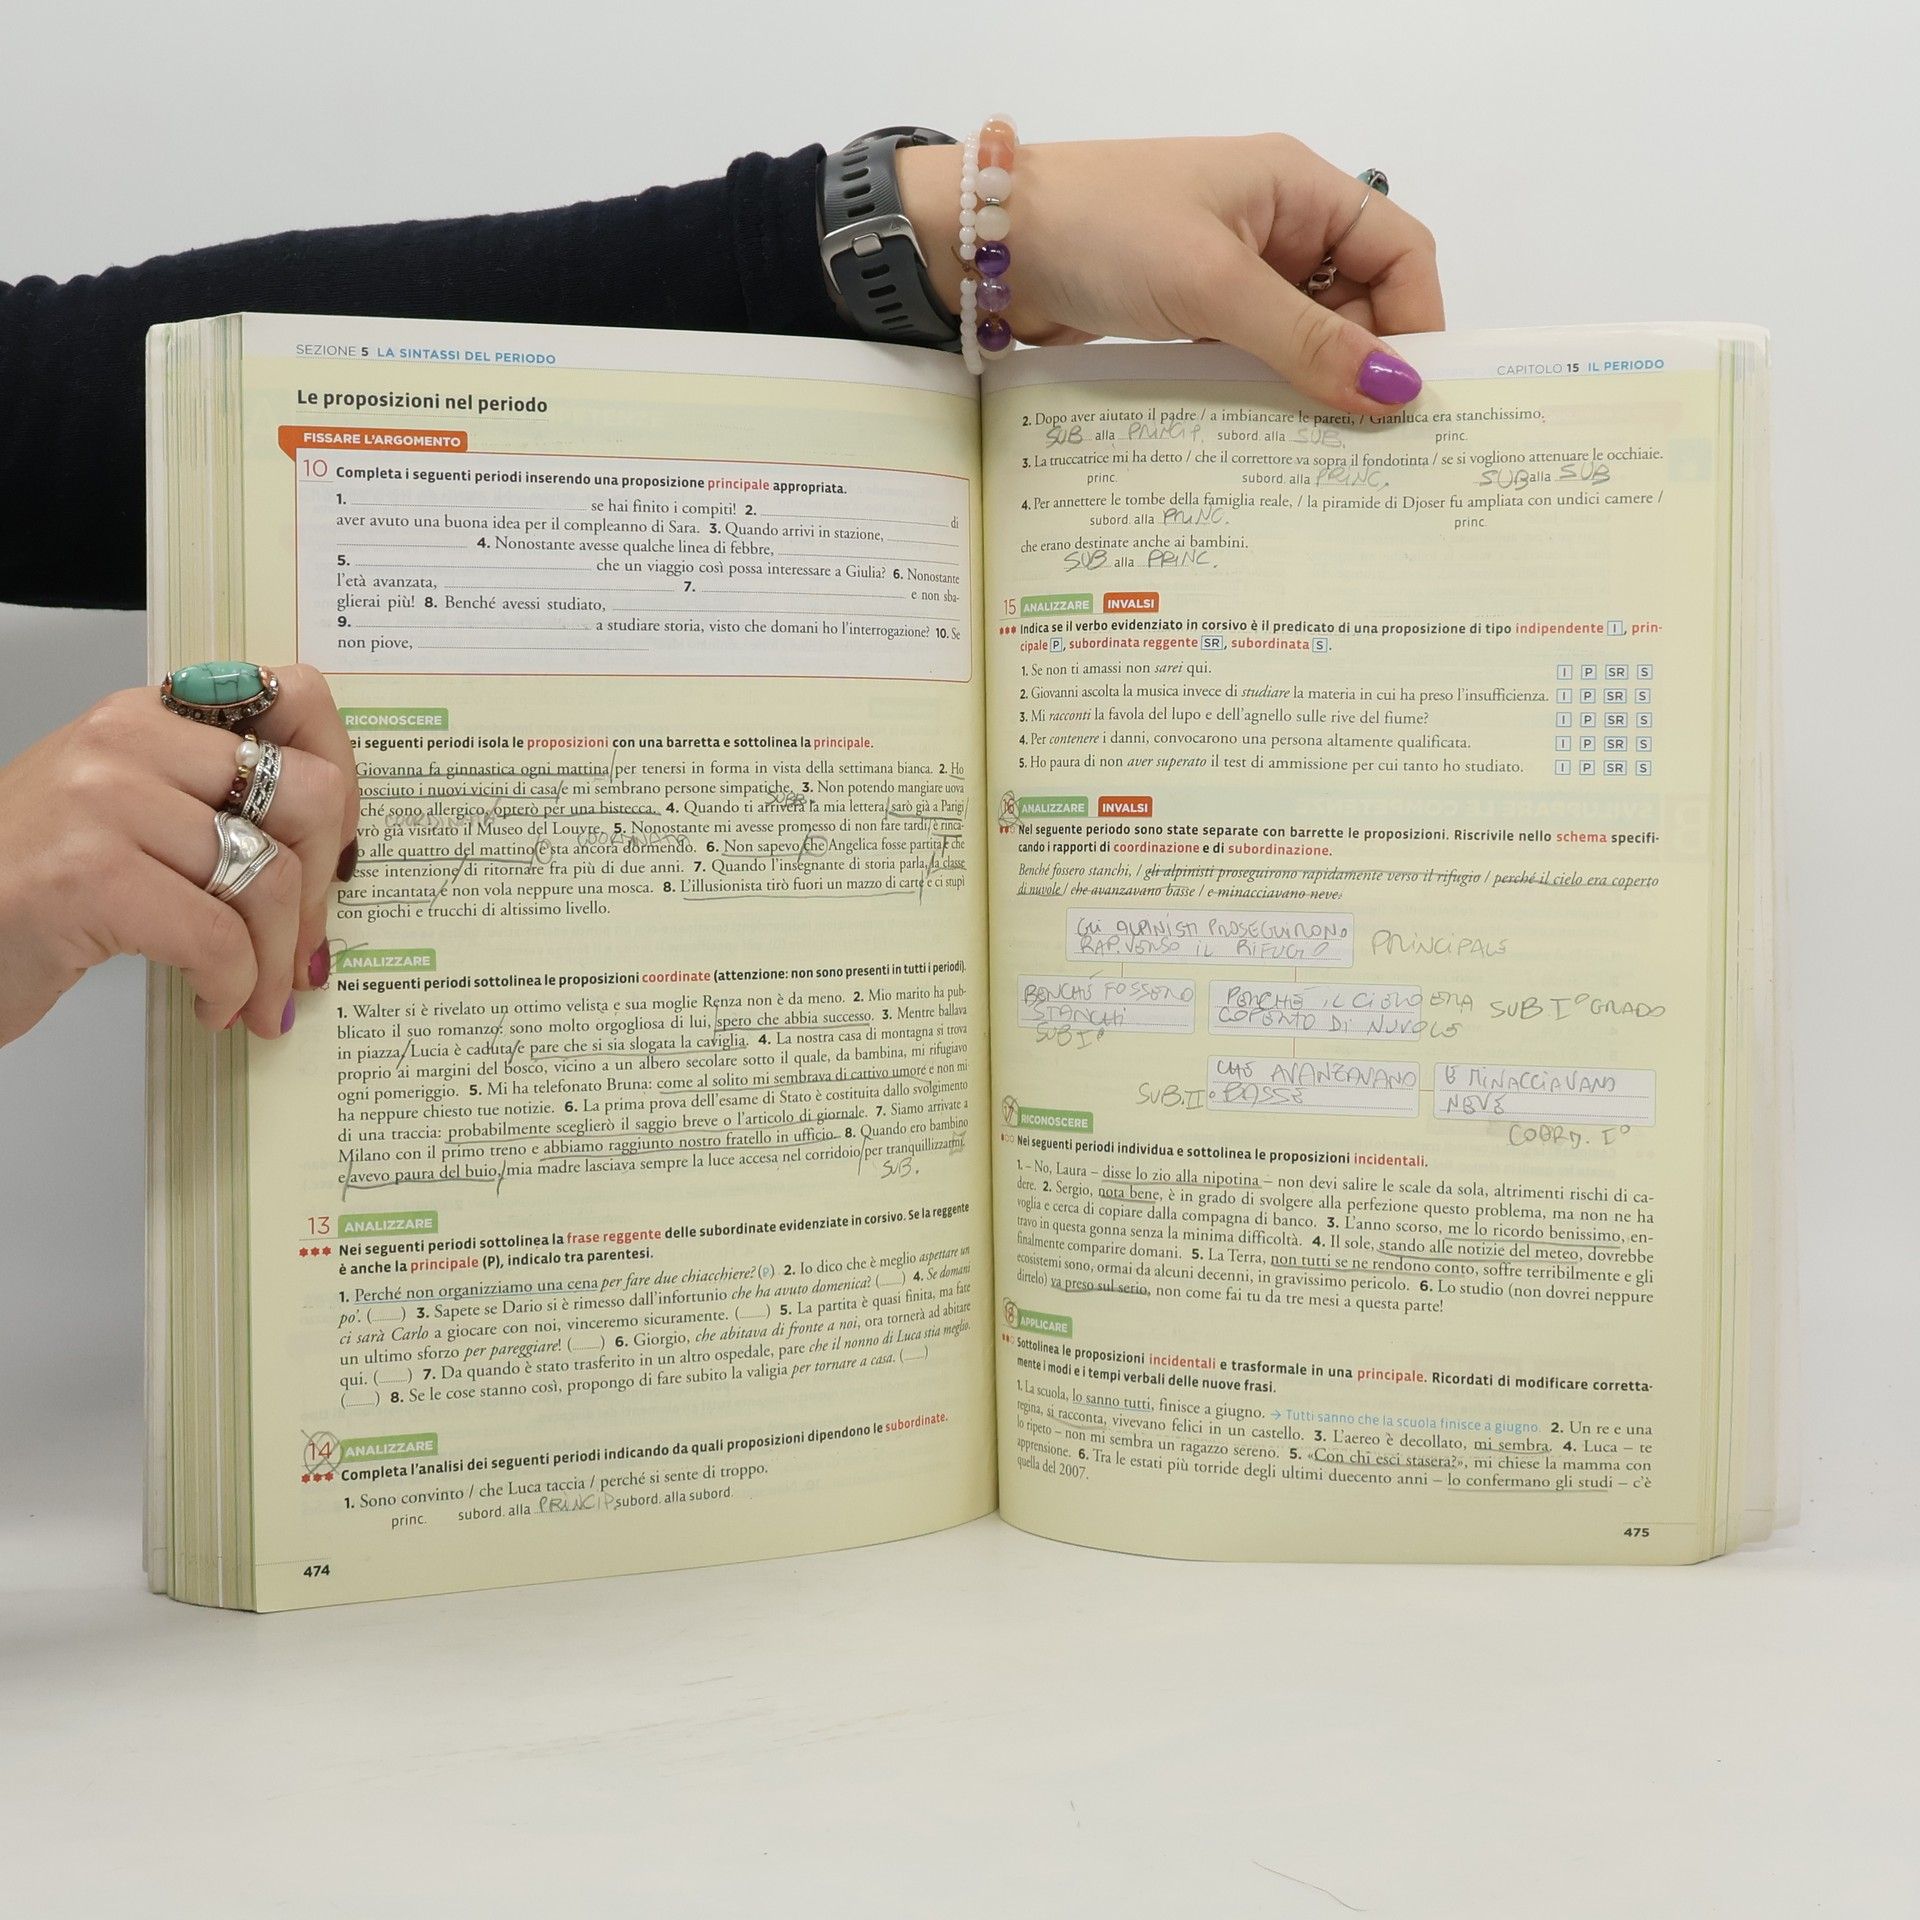 SEZIONE 5 LA SINTASSI DEL PERIODO
Le proposizioni nel periodo
FISSARE L'ARGOMENTO
10 Completa i seguenti periodi inserendo una proposizione principale appropriata.
1. se hai finito i compiti! 2. di
aver avuto una buona idea per il compleanno di Sara. 3. Quando arrivi in stazione,
4. Nonostante avesse qualche linea di febbre,
5. che un viaggio così possa interessare a Giulia? 6. Nonostante
l'età avanzata, 7. e non sba-
glierai più! 8. Benché avessi studiato,
9. a studiare storia, visto che domani ho l'interrogazione? 10. Se
non piove,
RICONOSCERE
ei seguenti periodi isola le proposizioni con una barretta e sottolinea la principale.
Giovanna fa ginnastica ogni mattina/per tenersi in forma in vista della settimana bianca. 2. Ho
nosciuto i nuovi vicini di casa/e mi sembrano persone simpatiche. 3. Non potendo mangiare uova
ché sono allergico, opterò per una bistecca. 4. Quando ti arriverà la mia lettera, sarò già a Parigi/
COORDINATA
SUBR.
vrò già visitato il Museo del Louvre. 5. Nonostante mi avesse promesso di non fare tardi/è rinca-
COORDINATA
o alle quattro del mattino e sta ancora dormendo. 6. Non sapevo che Angelica fosse partita e che
esse intenzione/di ritornare fra più di due anni. 7. Quando l'insegnante di storia parla, la classe
pare incantata/e non vola neppure una mosca. 8. L'illusionista tirò fuori un mazzo di carte e ci stupì
con giochi e trucchi di altissimo livello.
ANALIZZARE
Nei seguenti periodi sottolinea le proposizioni coordinate (attenzione: non sono presenti in tutti i periodi).
1. Walter si è rivelato un ottimo velista e sua moglie Renza non è da meno. 2. Mio marito ha pub-
blicato il suo romanzo: sono molto orgogliosa di lui, spero che abbia successo. 3. Mentre ballava
in piazza/Lucia è caduta/e pare che si sia slogata la caviglia. 4. La nostra casa di montagna si trova
proprio ai margini del bosco, vicino a un albero secolare sotto il quale, da bambina, mi rifugiavo
ogni pomeriggio. 5. Mi ha telefonato Bruna: come al solito mi sembrava di cattivo umore e non mi
ha neppure chiesto tue notizie. 6. La prima prova dell'esame di Stato è costituita dallo svolgimento
di una traccia: probabilmente sceglierò il saggio breve o l'articolo di giornale. 7. Siamo arrivate a
Milano con il primo treno e abbiamo raggiunto nostro fratello in ufficio. 8. Quando ero bambino
e/avevo paura del buio,/mia madre lasciava sempre la luce accesa nel corridoio/per tranquillizzarmi.
SUB.
13 ANALIZZARE
Nei seguenti periodi sottolinea la frase reggente delle subordinate evidenziate in corsivo. Se la reggente
è anche la principale (P), indicalo tra parentesi.
1. Perché non organizziamo una cena per fare due chiacchiere? (P) 2. Io dico che è meglio aspettare un
po'. ( ) 3. Sapete se Dario si è rimesso dall'infortunio che ha avuto domenica? ( ) 4. Se domani
ci sarà Carlo a giocare con noi, vinceremo sicuramente. ( ) 5. La partita è quasi finita, ma fate
un ultimo sforzo per pareggiare! ( ) 6. Giorgio, che abitava di fronte a noi, ora tornerà ad abitare
qui. ( ) 7. Da quando è stato trasferito in un altro ospedale, pare che il nonno di Luca stia meglio.
( ) 8. Se le cose stanno così, propongo di fare subito la valigia per tornare a casa. ( )
14 ANALIZZARE
Completa l'analisi dei seguenti periodi indicando da quali proposizioni dipendono le subordinate.
1. Sono convinto / che Luca taccia / perché si sente di troppo.
princ. subord. alla PRINCIP. subord. alla subord.
474
CAPITOLO 15 IL PERIODO
2. Dopo aver aiutato il padre / a imbiancare le pareti, / Gianluca era stanchissimo.
SUB alla PRINCIP. subord. alla SUB. princ.
3. La truccatrice mi ha detto / che il correttore va sopra il fondotinta / se si vogliono attenuare le occhiaie.
princ. subord. alla PRINC. SUB alla SUB
4. Per annettere le tombe della famiglia reale, / la piramide di Djoser fu ampliata con undici camere /
subord. alla PRINC. princ.
che erano destinate anche ai bambini.
SUB alla PRINC.
15 ANALIZZARE INVALSI
Indica se il verbo evidenziato in corsivo è il predicato di una proposizione di tipo indipendente I, prin-
cipale P, subordinata reggente SR, subordinata S.
1. Se non ti amassi non sarei qui. I P SR S
2. Giovanni ascolta la musica invece di studiare la materia in cui ha preso l'insufficienza. I P SR S
3. Mi racconti la favola del lupo e dell'agnello sulle rive del fiume? I P SR S
4. Per contenere i danni, convocarono una persona altamente qualificata. I P SR S
5. Ho paura di non aver superato il test di ammissione per cui tanto ho studiato. I P SR S
16 ANALIZZARE INVALSI
Nel seguente periodo sono state separate con barrette le proposizioni. Riscrivile nello schema specifi-
cando i rapporti di coordinazione e di subordinazione.
Benché fossero stanchi, / gli alpinisti proseguirono rapidamente verso il rifugio / perché il cielo era coperto
di nuvole / che avanzavano basse / e minacciavano neve.
GLI ALPINISTI PROSEGUIRONO
RAP. VERSO IL RIFUGIO PRINCIPALE
BENCHÉ FOSSERO
STANCHI
SUB I°
PERCHÉ IL CIELO ERA SUB I° GRADO
COPERTO DI NUVOLE
CHE AVANZAVANO
SUB. II° BASSE
E MINACCIAVANO
NEVE
COORD. I°
17 RICONOSCERE
Nei seguenti periodi individua e sottolinea le proposizioni incidentali.
1. – No, Laura – disse lo zio alla nipotina – non devi salire le scale da sola, altrimenti rischi di ca-
dere. 2. Sergio, nota bene, è in grado di svolgere alla perfezione questo problema, ma non ne ha
voglia e cerca di copiare dalla compagna di banco. 3. L'anno scorso, me lo ricordo benissimo, en-
travo in questa gonna senza la minima difficoltà. 4. Il sole, stando alle notizie del meteo, dovrebbe
finalmente comparire domani. 5. La Terra, non tutti se ne rendono conto, soffre terribilmente e gli
ecosistemi sono, ormai da alcuni decenni, in gravissimo pericolo. 6. Lo studio (non dovrei neppure
dirtelo) va preso sul serio, non come fai tu da tre mesi a questa parte!
18 APPLICARE
Sottolinea le proposizioni incidentali e trasformale in una principale. Ricordati di modificare corretta-
mente i modi e i tempi verbali delle nuove frasi.
1. La scuola, lo sanno tutti, finisce a giugno. → Tutti sanno che la scuola finisce a giugno. 2. Un re e una
regina, si racconta, vivevano felici in un castello. 3. L'aereo è decollato, mi sembra. 4. Luca – te
lo ripeto – non mi sembra un ragazzo sereno. 5. «Con chi esci stasera?», mi chiese la mamma con
apprensione. 6. Tra le estati più torride degli ultimi duecento anni – lo confermano gli studi – c'è
quella del 2007.
475